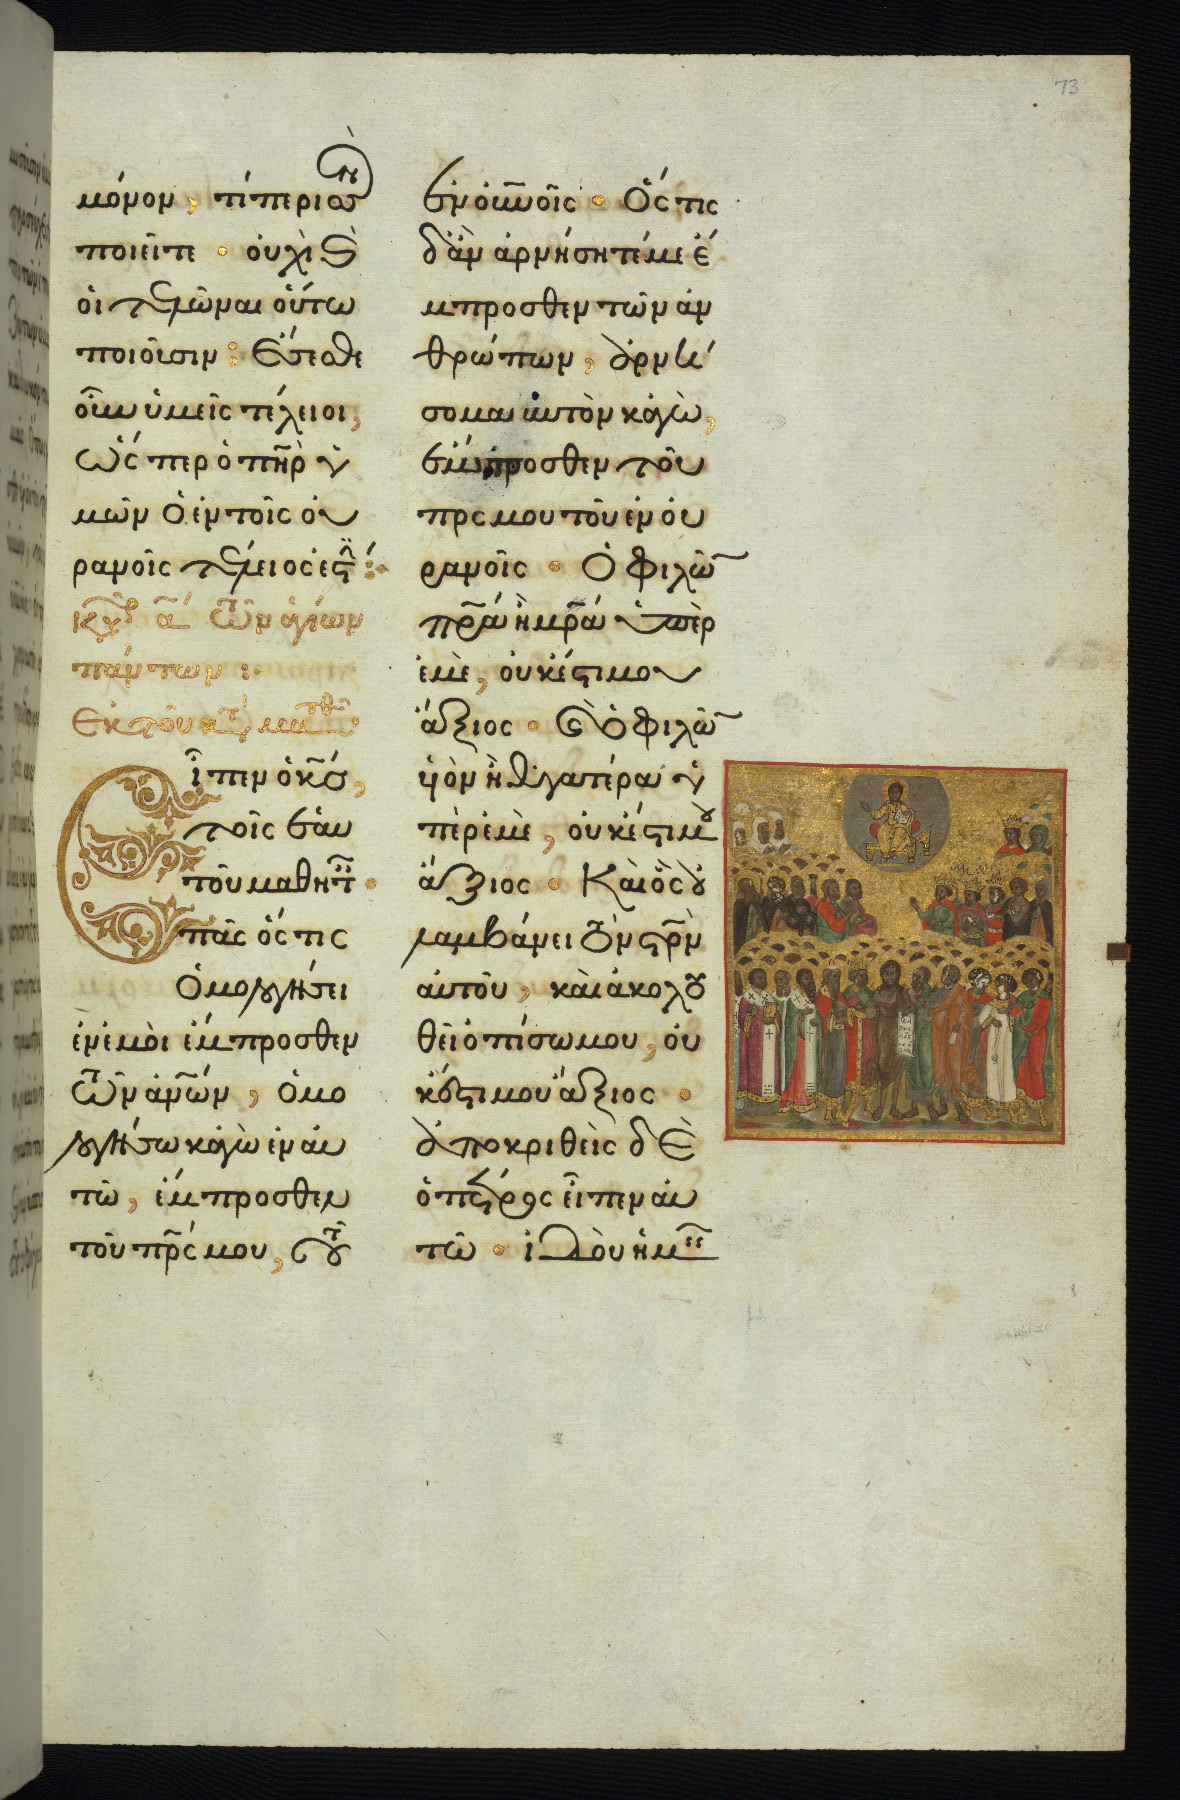 73
μόνον, τί περισσὸν
ποιεῖτε · οὐχὶ καὶ
οἱ τελῶναι οὕτω
ποιοῦσιν : Ἔσεσθε
οὖν ὑμεῖς τέλειοι,
ὥσπερ ὁ πη̅ρ ὑ
μῶν ὁ ἐν τοῖς οὐ
ρανοῖς τέλειός ἐστιν :
Κυ α τῶν ἁγίων
πάντων :
Ἐκ τοῦ κατὰ ματθαῖον
Εἶπεν ὁ κ̅σ,
τοῖς ἑαυ
τοῦ μαθηταῖς ·
πᾶς ὅστις
ὁμολογήσει
ἐν ἐμοὶ ἔμπροσθεν
τῶν ἀν̅ων, ὁμο
λογήσω κἀγὼ ἐν αὐ
τῷ, ἔμπροσθεν
τοῦ πρ̅ς μου, τοῦ
ἐν οὐνοῖς · Ὅστις
δ' ἂν ἀρνήσηταί με ἔ
μπροσθεν τῶν ἀν
θρώπων, ἀρνή
σομαι αὐτὸν κἀγὼ,
ἔμπροσθεν τοῦ
πρς μου τοῦ ἐν οὐ
ρανοῖς · Ὁ φιλῶν
πρ̅α ἢ μρ̅α ὑπὲρ
ἐμὲ, οὐκ ἔστι μου
ἄξιος · καὶ ὁ φιλῶν
υἱὸν ἢ θυγατέρα ὑ
πὲρ ἐμὲ, οὐκ ἔστι μου
ἄξιος · Καὶ ὃς οὐ
λαμβάνει τὸν στρ̅ὸν
αὐτοῦ, καὶ ἀκολου
θεῖ ὀπίσω μου, οὐ
κ ἔστι μου ἄξιος ·
ἀποκριθεὶς δὲ
ὁ πέτρος εἶπεν αὐ
τῷ · ἰδοὺ ἡμεῖς